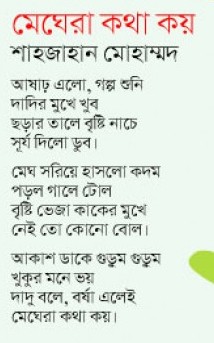 মেঘেরা কথা কয়
শাহজাহান মোহাম্মদ
আষাঢ় এলো, গল্প শুনি
দাদির মুখে খুব
ছড়ার তালে বৃষ্টি নাচে
সূর্য দিলো ডুব।
মেঘ সরিয়ে হাসলো কদম
পড়ল গালে টোল
বৃষ্টি ভেজা কাকের মুখে
নেই তো কোনো বোল।
আকাশ ডাকে গুড়ুম গুড়ুম
খুকুর মনে ভয়
দাদু বলে, বর্ষা এলেই
মেঘেরা কথা কয়।